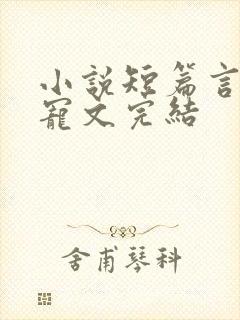 小說短篇言
寵文完結
舍甫琴科